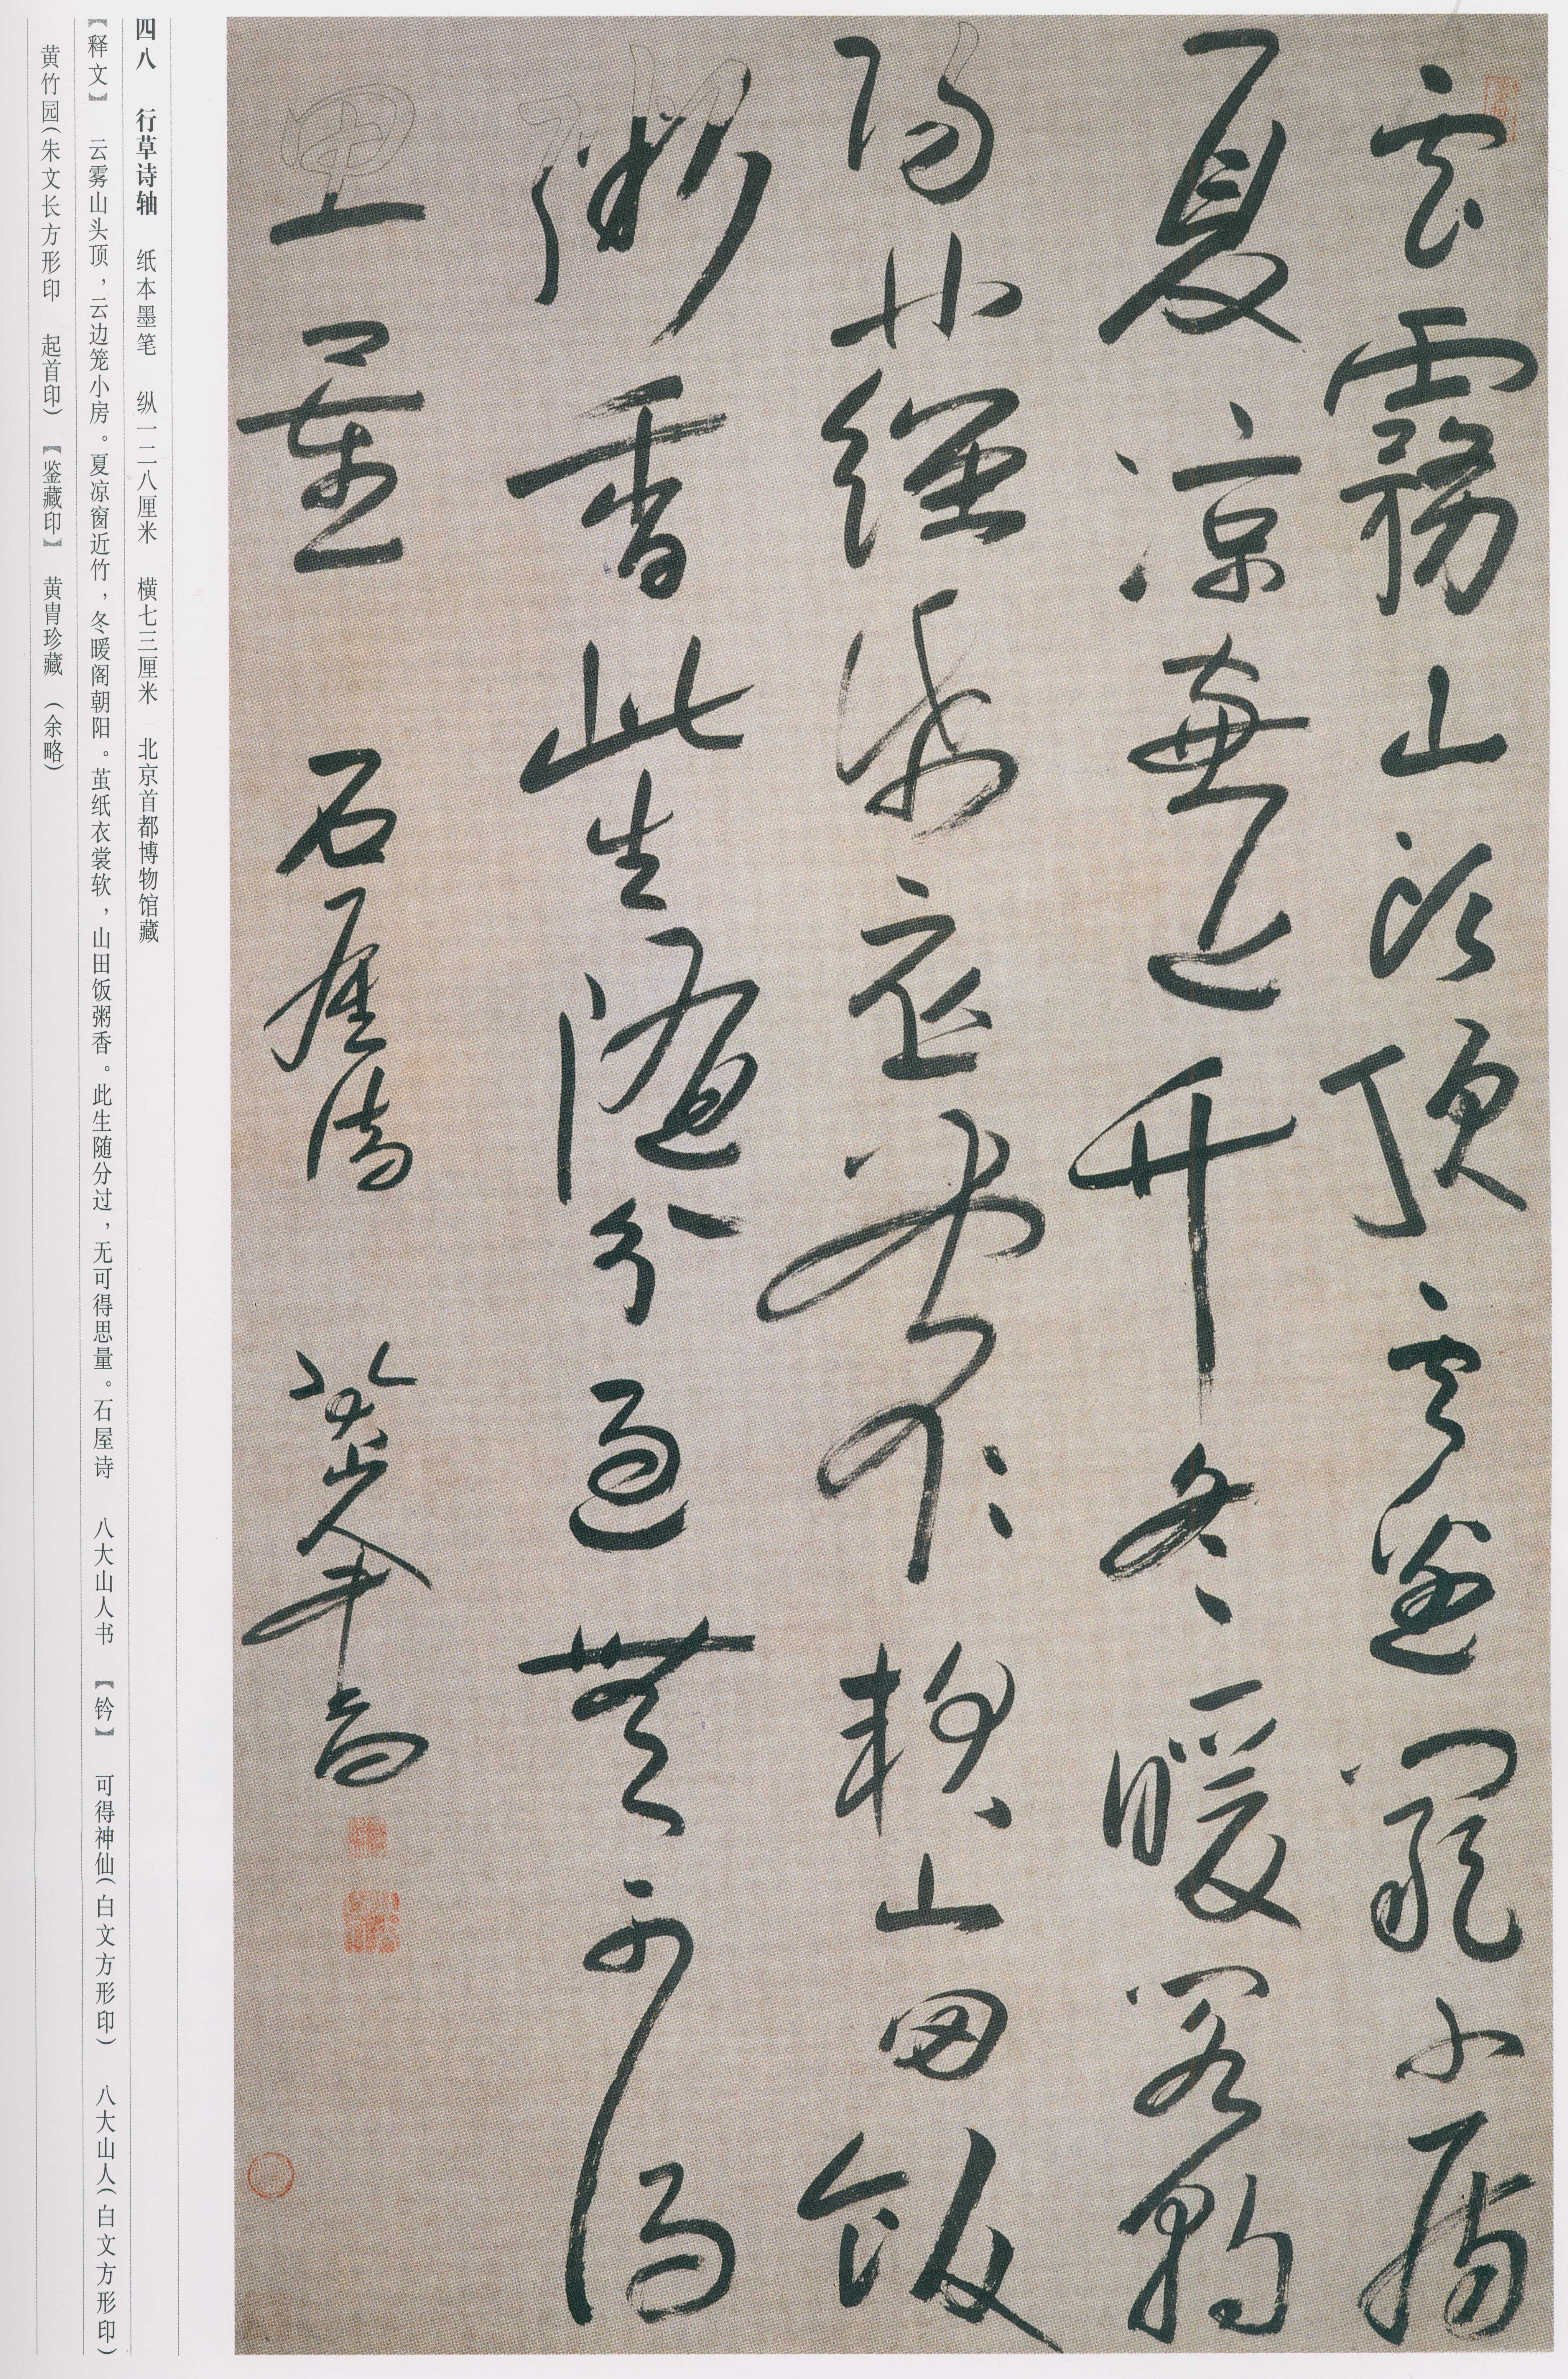 雲霧山頭頂雲邊籠小房
夏凉窗近竹冬暖閣朝
陽繭紙衣裳軟山田飯
粥香此生隨分過無可得
思量 石屋诗 八大山人書
四八 行草诗轴 纸本墨笔 纵一二八厘米 横七三厘米 北京首都博物馆藏
【释文】 云雾山头顶，云边笼小房。夏凉窗近竹，冬暖阁朝阳。茧纸衣裳软，山田饭粥香。此生随分过，无可得思量。石屋诗 八大山人书 【钤】 可得神仙(白文方形印) 八大山人(白文方形印)
黄竹园(朱文长方形印 起首印) 【鉴藏印】 黄胄珍藏 (余略)